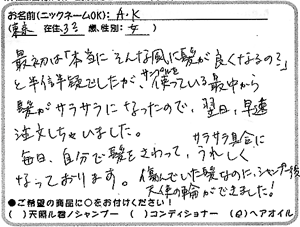 お名前(ニックネームOK): A.K
(東京 )在住、(33 歳、性別: 女 )
最初は「本当に そんな風に髪が良くなるの?」
と半信半疑でしたが、サンプルを使っている最中から
髪がサラサラになったので、翌日、早速
注文しちゃいました。
毎日、自分で髪をさわって、サラサラ具合に うれしく
なっております。傷んでいた髪なのに、シャンプー後
天使の輪ができました!
●ご希望の商品に○をお付けください!
( )天照ル君ノシャンプー ( )コンディショナー (○)ヘアオイル